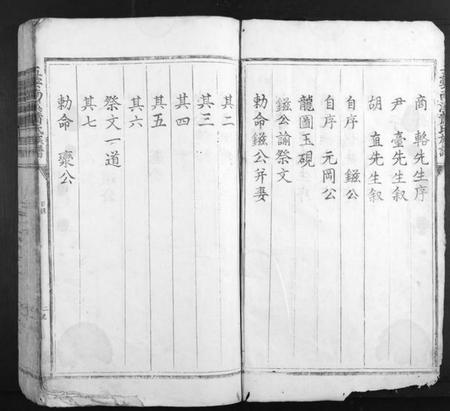 商輅先生序
尹臺先生叙
胡直先生叙
自序 鎡公
自序 元岡公
龍圖玉硯
鎡公諭祭文
勅命鎡公幷妻
其二
其三
其四
其五
其六
祭文一道
其七
勅命 褧公